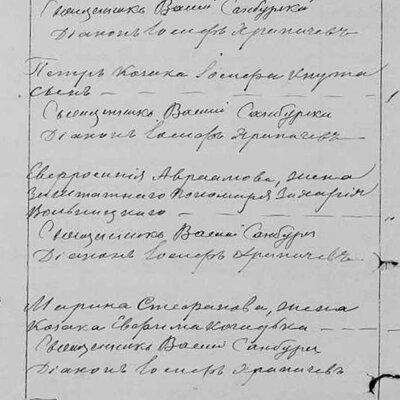 Священникъ Василій Санбурскій
Діаконъ Іосифъ Храпачевъ
Петръ Козака Іосифа Кнута
сынъ
Священникъ Василій Санбурскій
Діаконъ Іосифъ Храпачевъ
Евфросинія Авраамова, жена
Заштатнаго Пономаря Захарія
Священникъ Василій Санбурскій
Діаконъ Іосифъ Храпачевъ
Марина Стефанова, жена
Козака Ефрима
Священникъ Василій Санбурскій
Діаконъ Іосифъ Храпачевъ